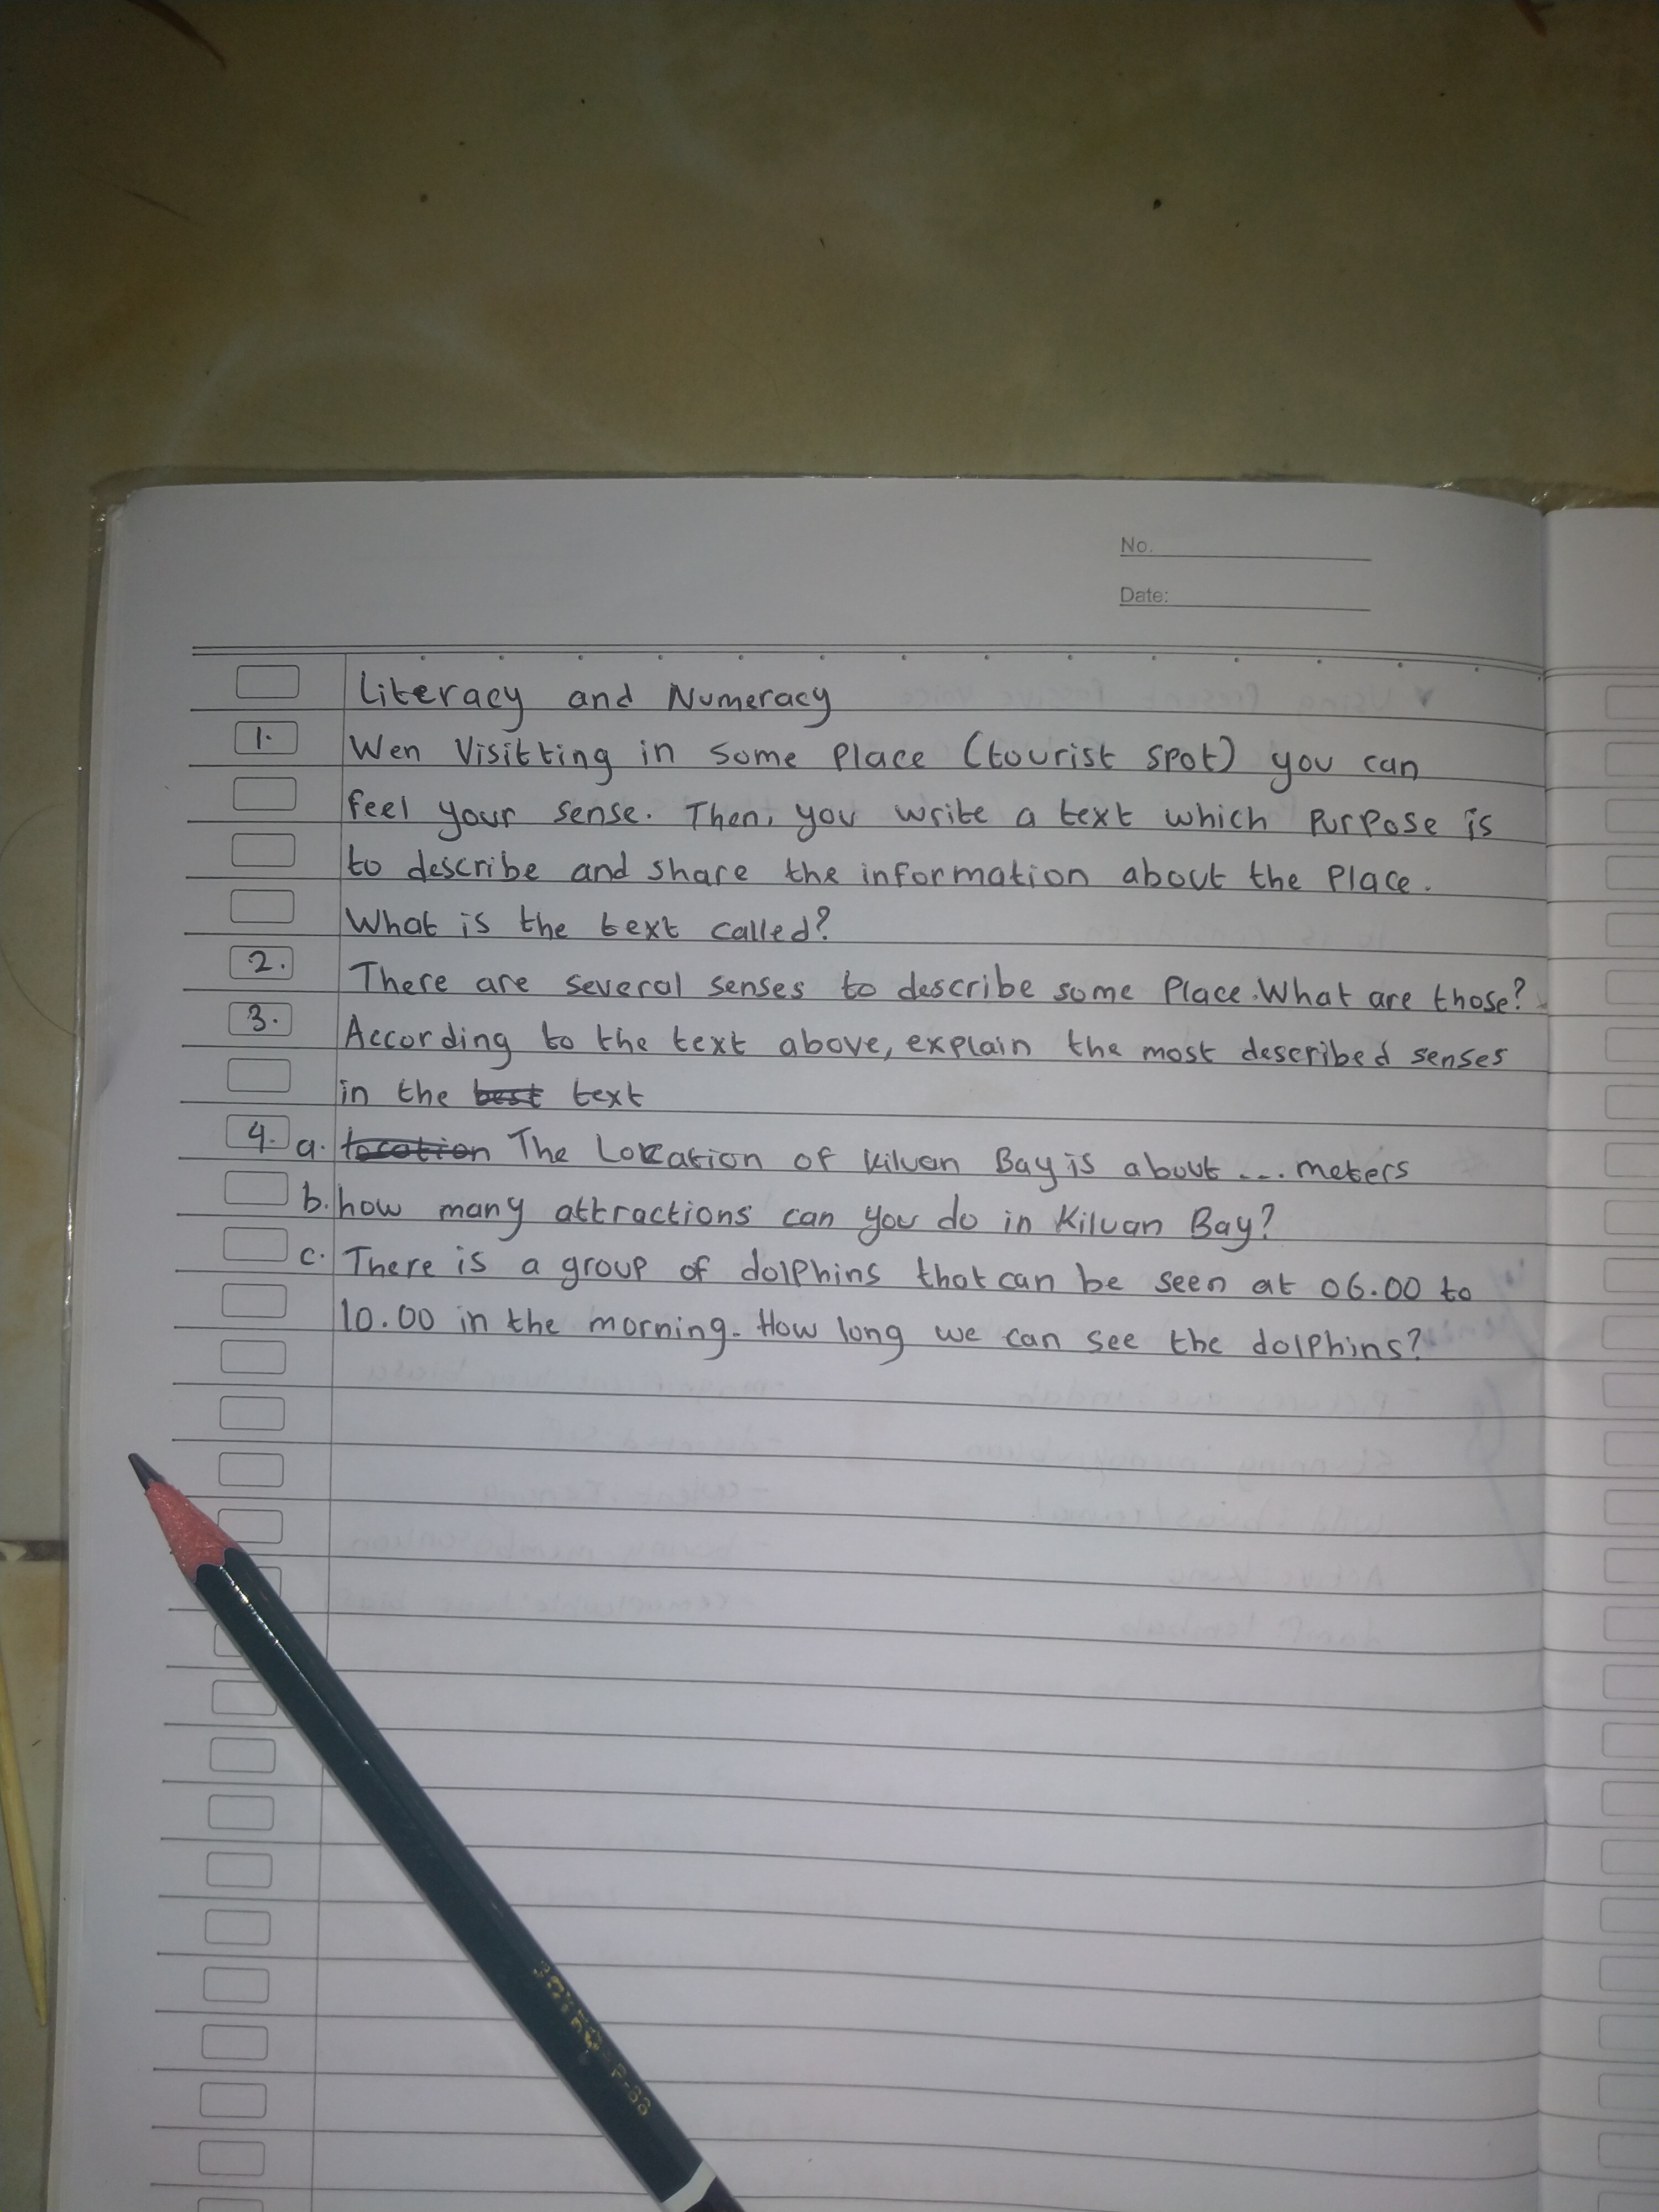 No.
Date:
Literacy and Numeracy
1. Wen Visitting in some Place (tourist spot) you can
feel your sense. Then, you write a text which Purpose is
to describe and share the information about the Place.
What is the text called?
2. There are several senses to describe some Place. What are those?
3. According to the text above, explain the most described senses
in the best text
4. a. location The Location of Kiluan Bay is about ... meters
b. how many attractions can you do in Kiluan Bay?
c. There is a group of dolphins that can be seen at 06.00 to
10.00 in the morning. How long we can see the dolphins?